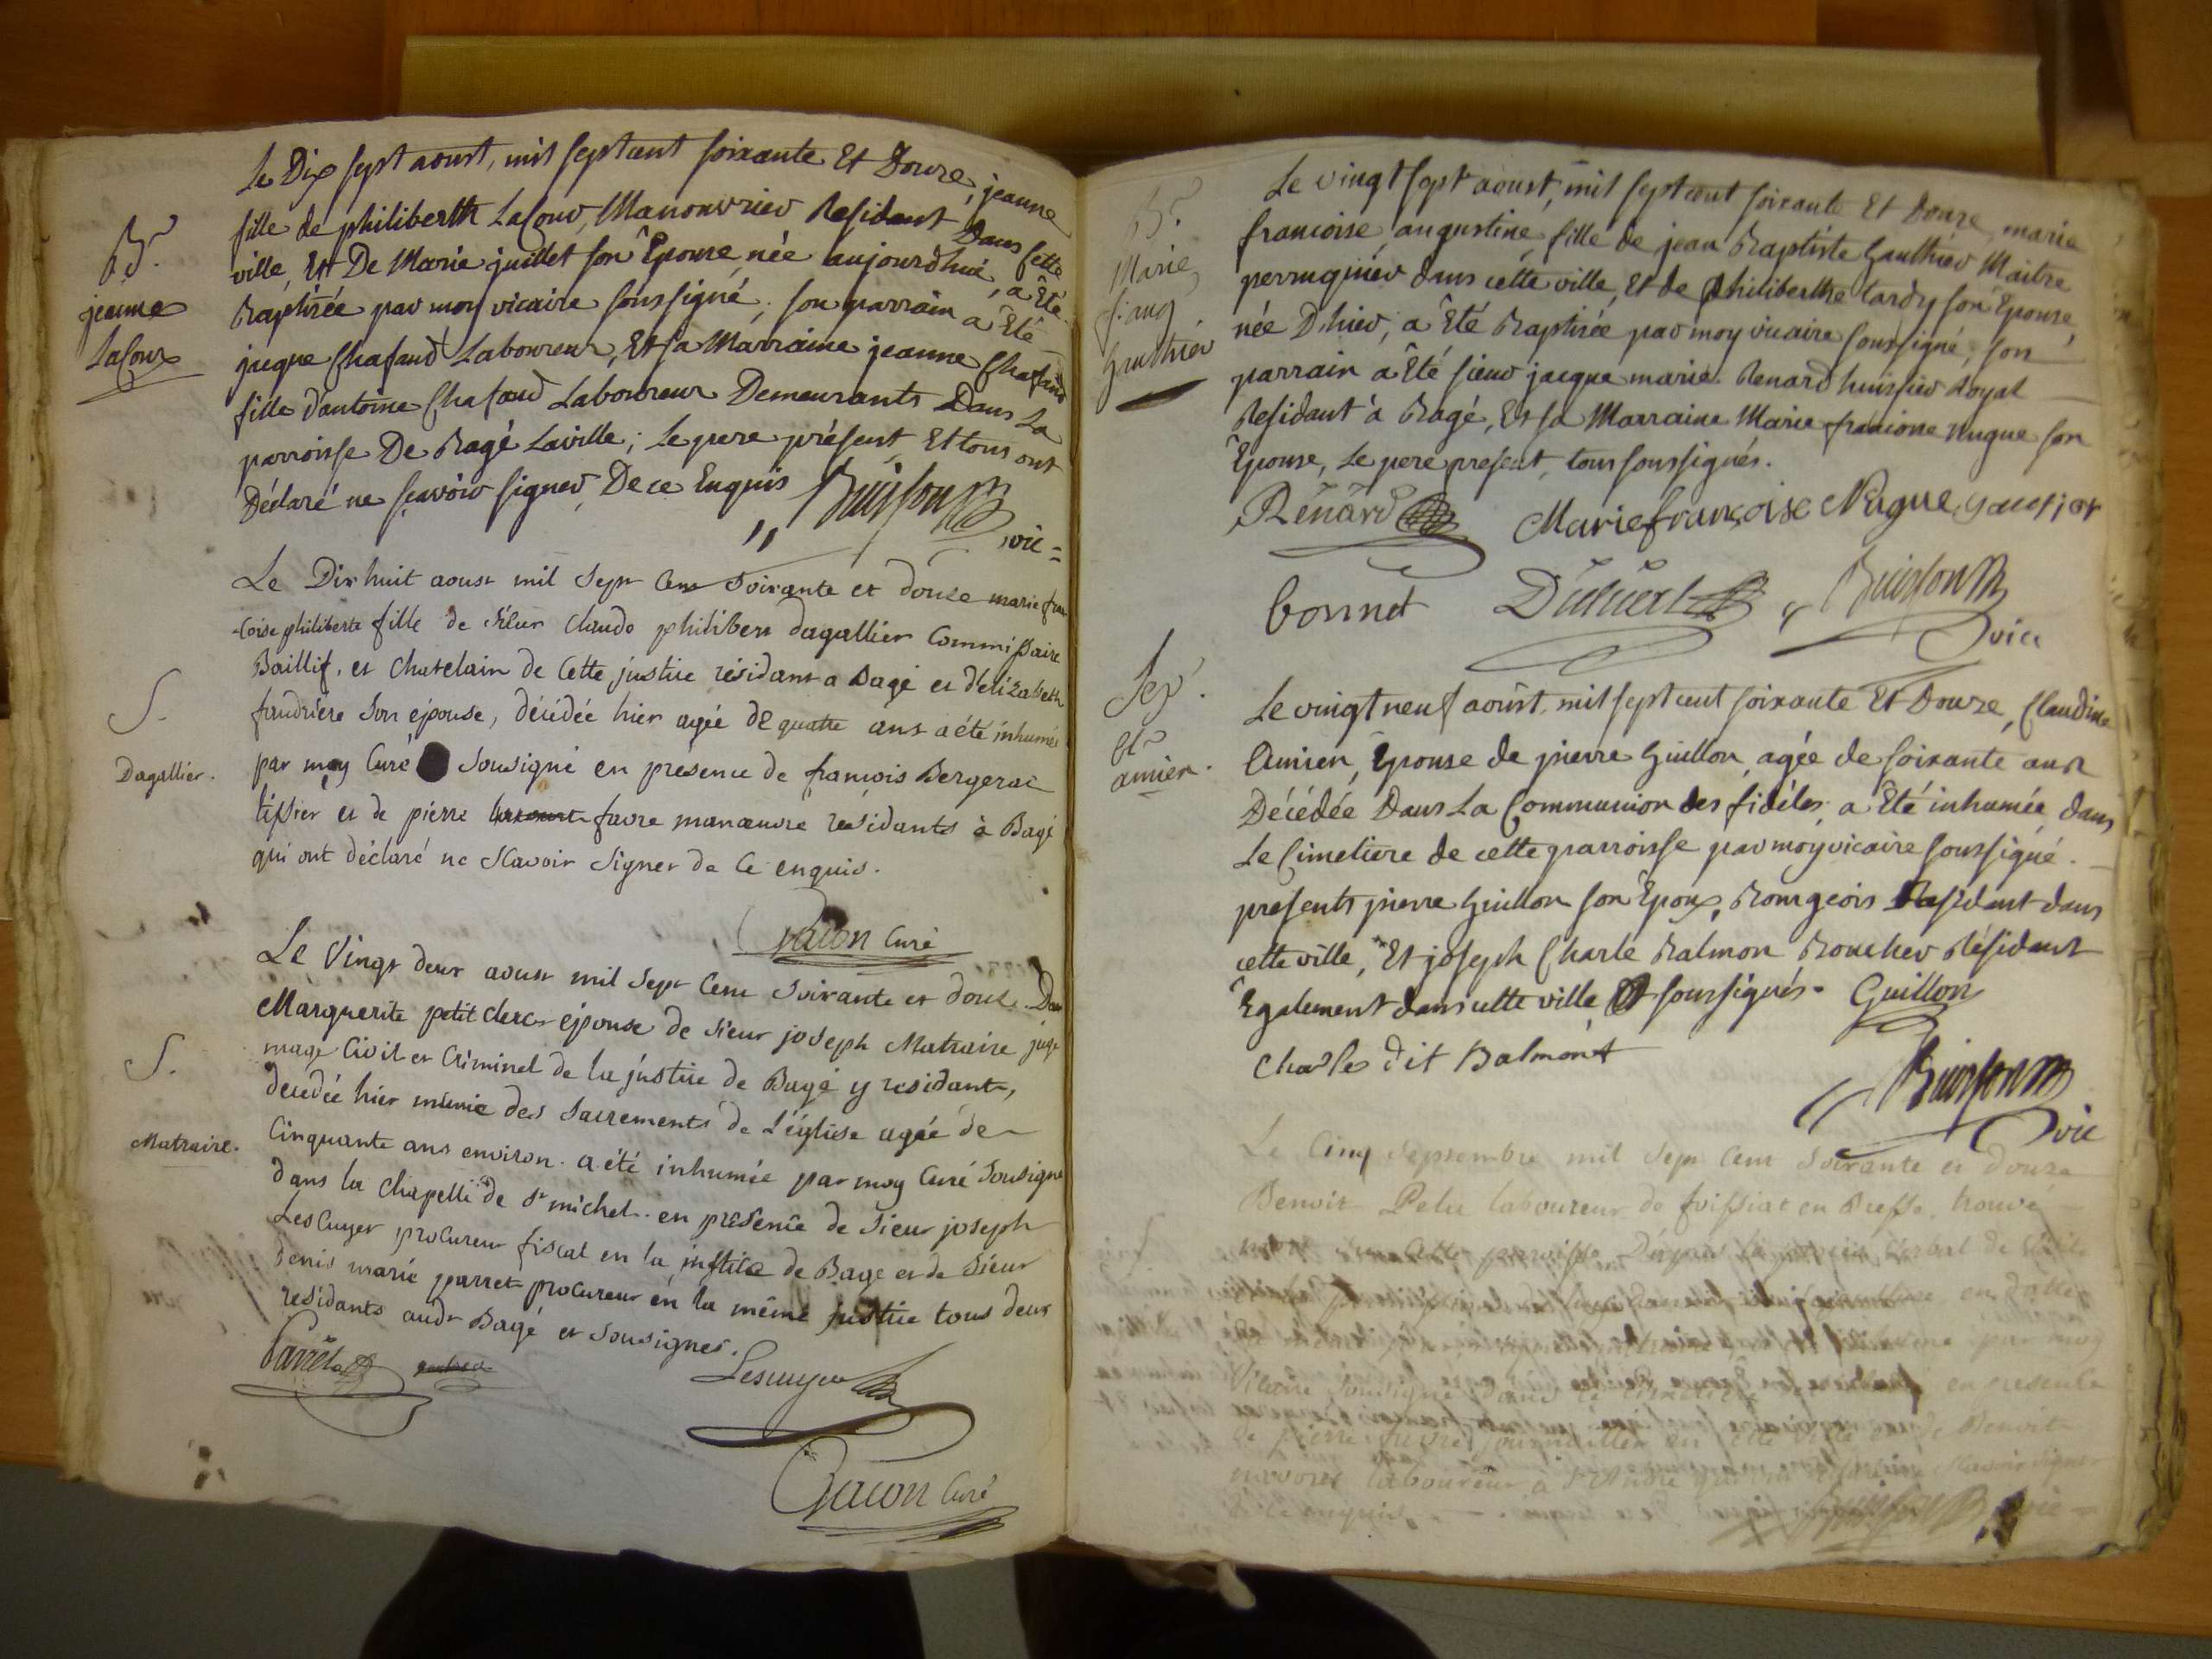 Le Dix sept aoust, mil sept cent soixante Et Douze, jeanne
fille de philiberth Lacour, Manouvrier Residant Dans Cette
ville, Et De Marie juillet son Epouse, née aujourdhui, a Eté
Baptisée par moy vicaire soussigné, son parrain a Eté
jacque Chafaud Laboureur, Et sa Marraine jeanne Chafaud
fille dantoine Chafaud Laboureur Demeurants Dans La
parroisse De Bagé Laville; Le pere présent, Et tous ont
Déclaré ne sçavoir signer, De ce Enquis
Buisson
vic=
B.
jeanne
Lacour
Le Dix huit aoust mil Sept Cent Soixante et douze marie fran
-coise philiberte fille de Sieur Claude philibert dagallier Commissaire
Baillif, et Chatelain de Cette justice résidant a Bagé et d'élizabeth
faudriere Son épouse, décédée hier agée de quatre ans a été inhumée
par moy Curé Sousigné en presence de francois Bergerat
tissier et de pierre favre manœuvre résidants à Bagé
qui ont déclaré ne Scavoir Signer de Ce enquis.
Gacon Curé
S.
Dagallier.
Le Vingt deux aoust mil Sept Cent Soixante et douze Dam
Marguerite petit clerc épouse de Sieur joseph Matraire juge
mage Civil et Criminel de la justice de Bagé y residant,
decédée hier munie des Sacrements de L'église agée de
Cinquante ans environ. a été inhumée par moy Curé Sousigné
dans la Chapelle de St michel. en presence de Sieur joseph
Lescuyer procureur fiscal en la justice de Bagé et de Sieur
denis marie parret procureur en la même justice tous deux
résidants audt Bagé et Sousignés.
Parret
Lescuyer
Gacon Curé
S.
Matraire.
Le vingt sept aoust, mil sept cent soixante Et douze, marie
francoise, augustine, fille de jean Baptiste Gauthier Maitre
perruquier dans cette ville, Et de Philiberthe tardy son Epouse,
née Dhier, a Eté Baptisée par moy vicaire soussigné, son
parrain a Eté sieur jacque marie Renard huissier Royal
Residant à Bagé, Et sa Marraine Marie francoise nugue son
Epouse, Le pere present, tous soussignés.
Renard Marie françoise Nugue
bonnet
Buisson
vica
B.
Marie
f. aug
Gauthier
Le vingt neuf aoûst, mil sept cent soixante Et Douze, Claudine
Amien, Epouse de pierre Guillon, agée de soixante ans
Décédée Dans La Communion des fidéles, a Eté inhumée, dans
Le Cimetiere de cette parroisse par moy vicaire soussigné.
présents pierre Guillon son Epoux, Bourgeois Residant dans
cette ville, Et joseph Charle Balmon Boucher Résidant
Egalement dans cette ville Et soussignés. Guillon
Charles dit Balmont
Buisson
vic
Sep.
Cl
amien.
Le Cinq Septembre mil Sept Cent Soixante et douze
Benoit Pelu laboureur de foissiat en Bresse, trouvé
Vicaire Sousigné dans en presence
de pierre favre journallier en cette ville et de Benoit
laboureur a St André qui ont Signer
de Ce enquis.